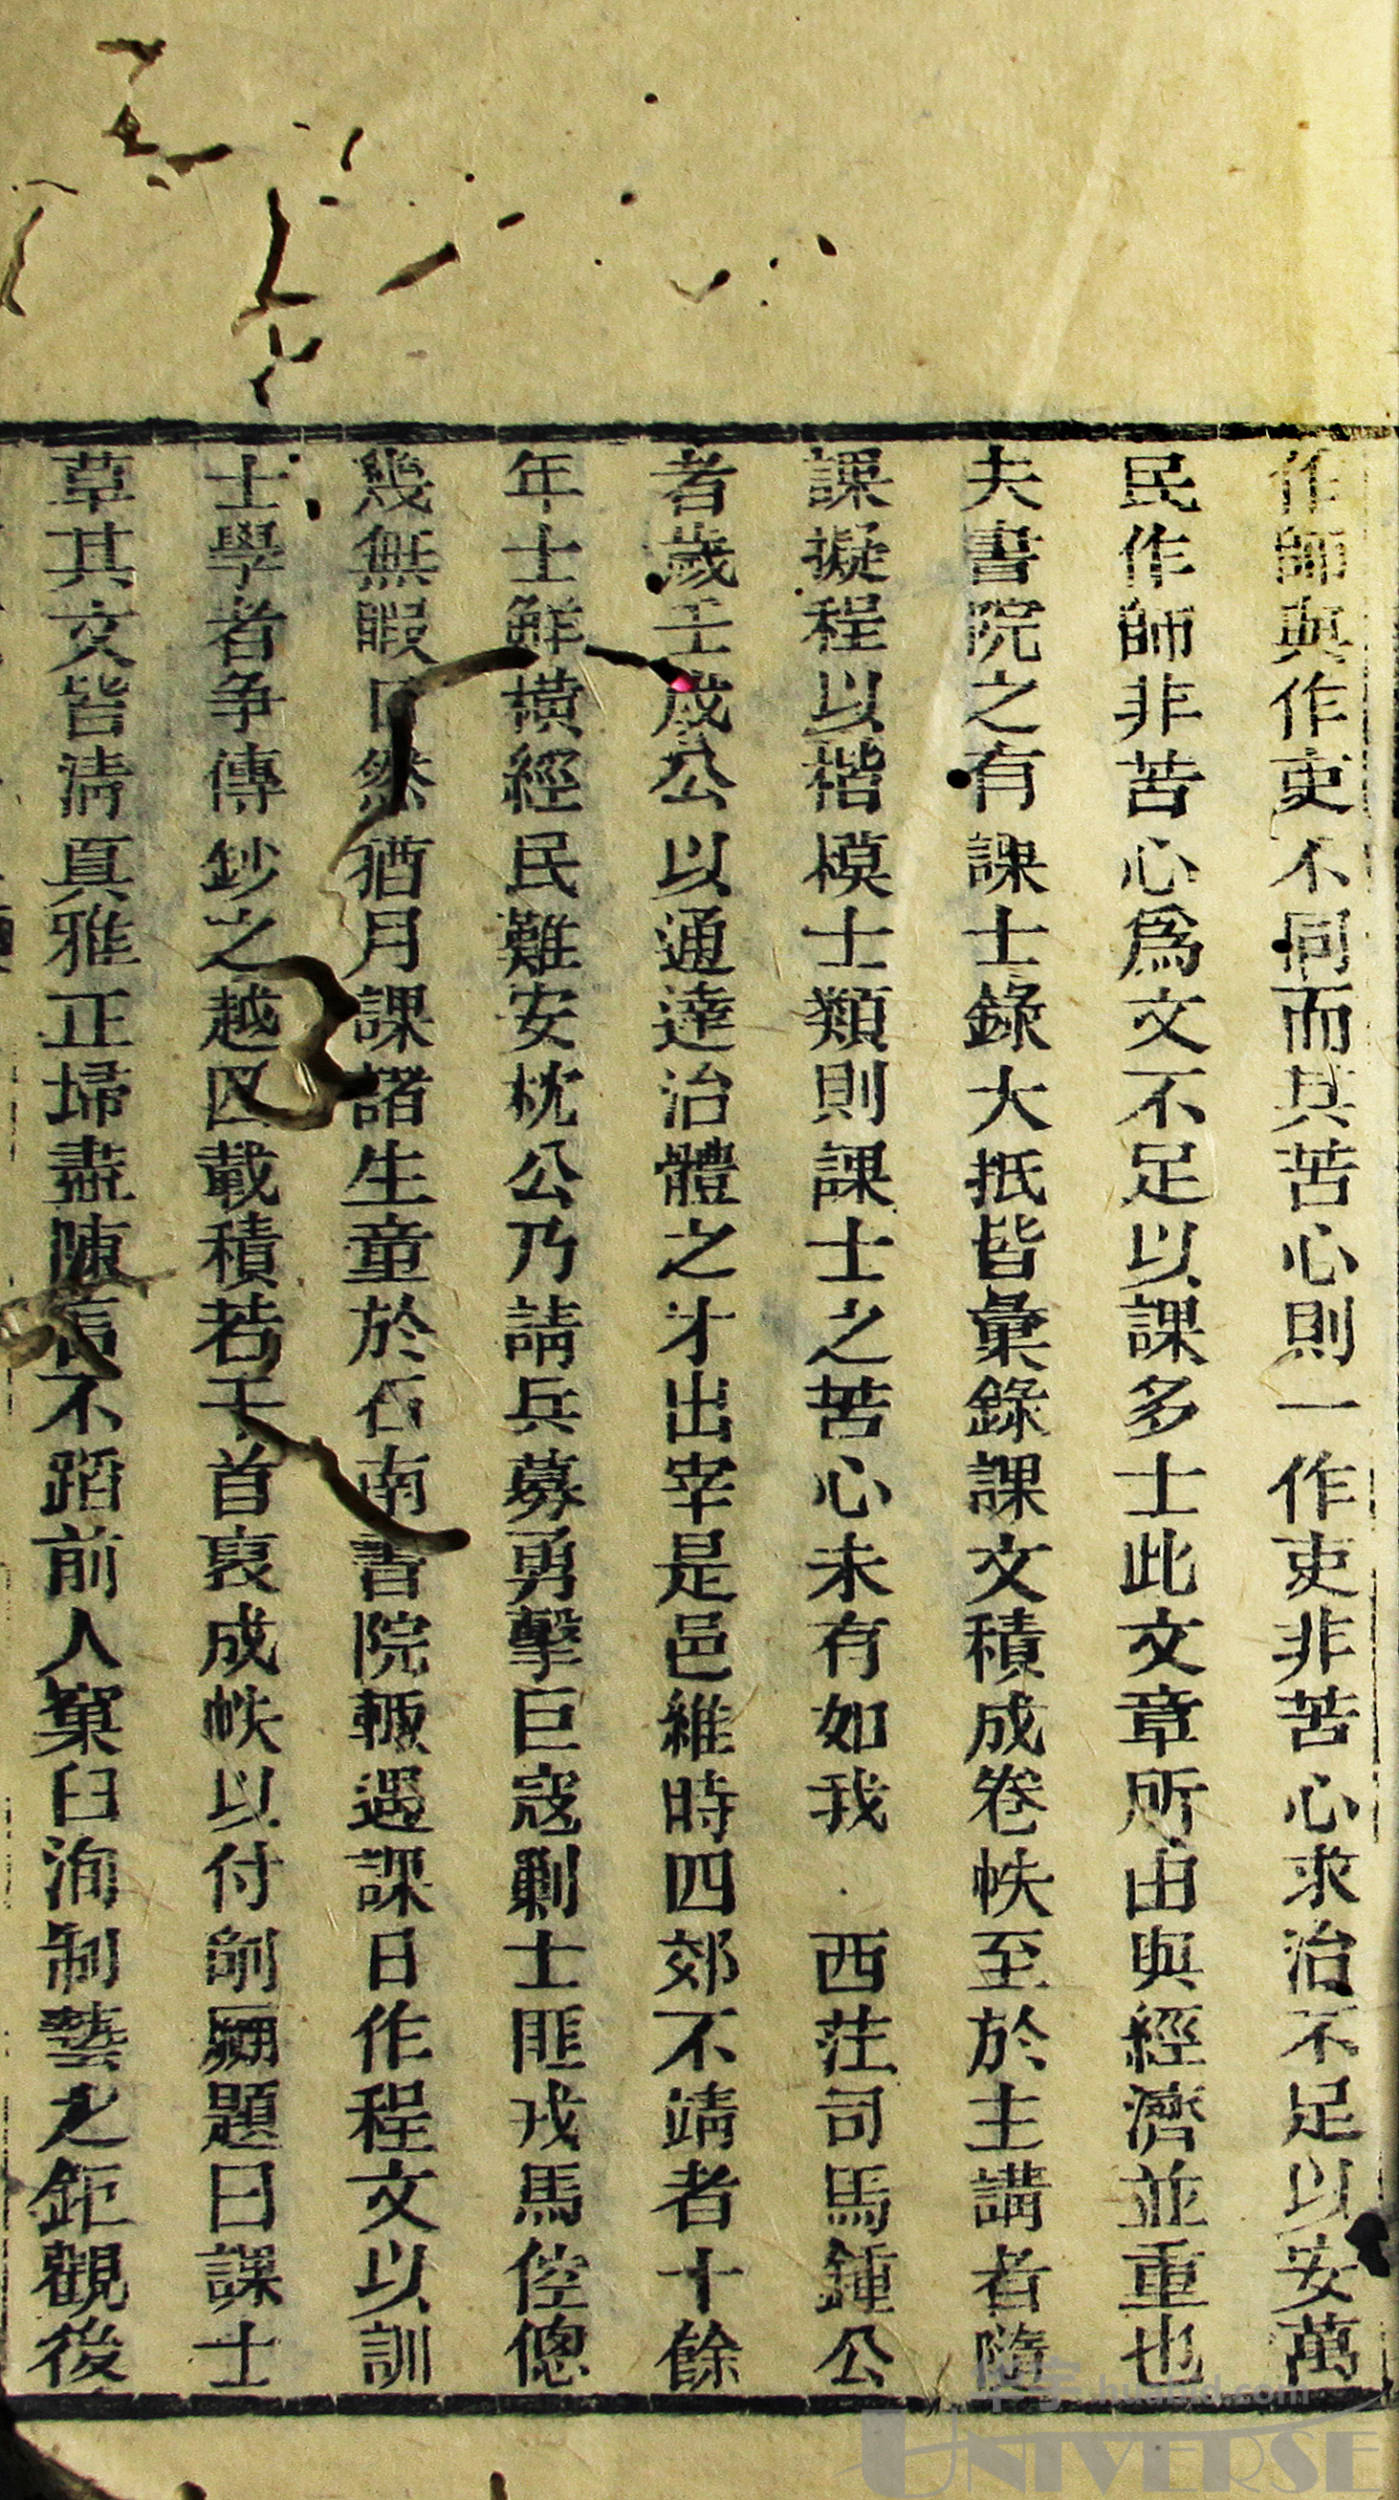 作師與作吏不同而其苦心則一作吏非苦心求治不足以安萬
民作師非苦心爲文不足以課多士此文章所由與經濟並重也
夫書院之有課士錄大抵皆彙錄課文積成卷帙至於主講者隨
課擬程以楷模士類則課士之苦心未有如我 西莊司馬鍾公
者歲壬戌公以通達治體之才出宰是邑維時四郊不靖者十餘
年士鮮橫經民難安枕公乃請兵募勇擊巨寇剿士匪戎馬倥傯
幾無暇日然猶月課諸生童於石南書院輒遇課日作程文以訓
士學者争傳鈔之越四載積若干首裒成帙以付剞劂題曰課士
草其文皆清真雅正埽盡陳言不蹈前人窠臼洵制藝之鉅觀後
华宇 huabid.com
UNIVERSE